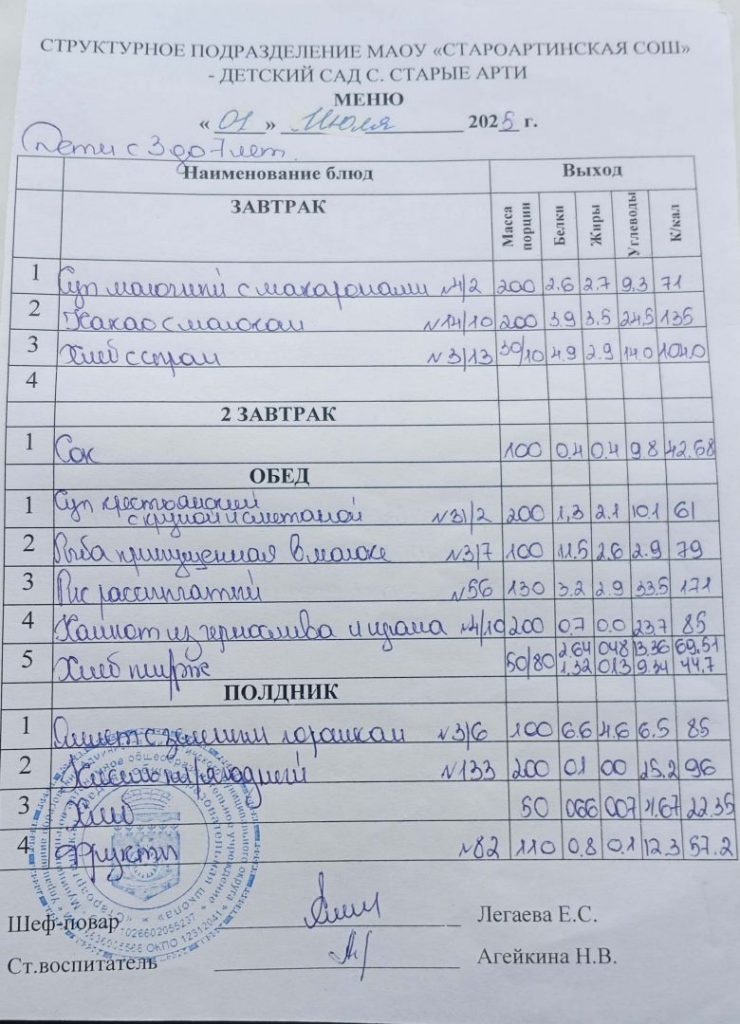 СТРУКТУРНОЕ ПОДРАЗДЕЛЕНИЕ МАОУ «СТАРОАРТИНСКАЯ СОШ»
- ДЕТСКИЙ САД С. СТАРЫЕ АРТИ
МЕНЮ
« 01 » Июля 2025 г.
Дети с 3 до 7 лет.
Наименование блюд Выход
ЗАВТРАК Масса порции Белки Жиры Углеводы К/кал
1 Суп молочный с макаронами №4/2 200 2.6 2.7 9,3 71
2 Какао с молоком №14/10 200 3.9 3.5 24,5 135
3 Хлеб с сыром №3/13 30/10 4.9 2.9 14.0 104.0
4
2 ЗАВТРАК
1 Сок 100 0.4 0.4 9.8 42.68
ОБЕД
1 Суп крестьянский
с крупой и сметаной №31/2 200 1,3 2.1 10.1 61
2 Рыба припущенная в молоке №3/7 100 11.5 2.6 2.9 79
3 Рис рассыпчатый №56 130 3.2 2.9 33.5 171
4 Компот из чернослива и изюма №4/10 200 0.7 0.0 23.7 85
5 Хлеб пш/рж 50/80 2.64 0.48 13.36 69.51
1.32 0.13 9.34 44.7
ПОЛДНИК
1 Омлет с зеленым горошком №3/6 100 6.6 4.6 6.5 85
2 №133 200 0.1 00 25.2 96
3 Хлеб 50 066 007 4.67 22.35
4 Фрукты №82 110 0.8 0.1 12.3 57.2
Шеф-повар Легаева Е.С.
Ст.воспитатель Агейкина Н.В.